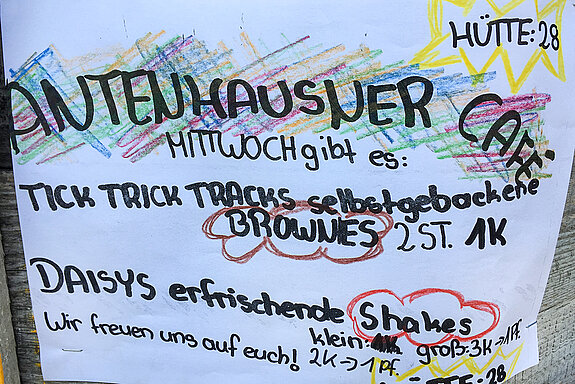 HÜTTE: 28
ANTENHAUSNER
CAFÉ
MITTWOCH gibt es:
TICK TRICK TRACKS selbstgebackene
BROWNIES 2 ST. 1K
DAISYS erfrischende Shakes
Wir freuen uns auf euch!
klein: groß: 3K → 1 Pf.
2K → 1 Pf.
HÜTTE: 28